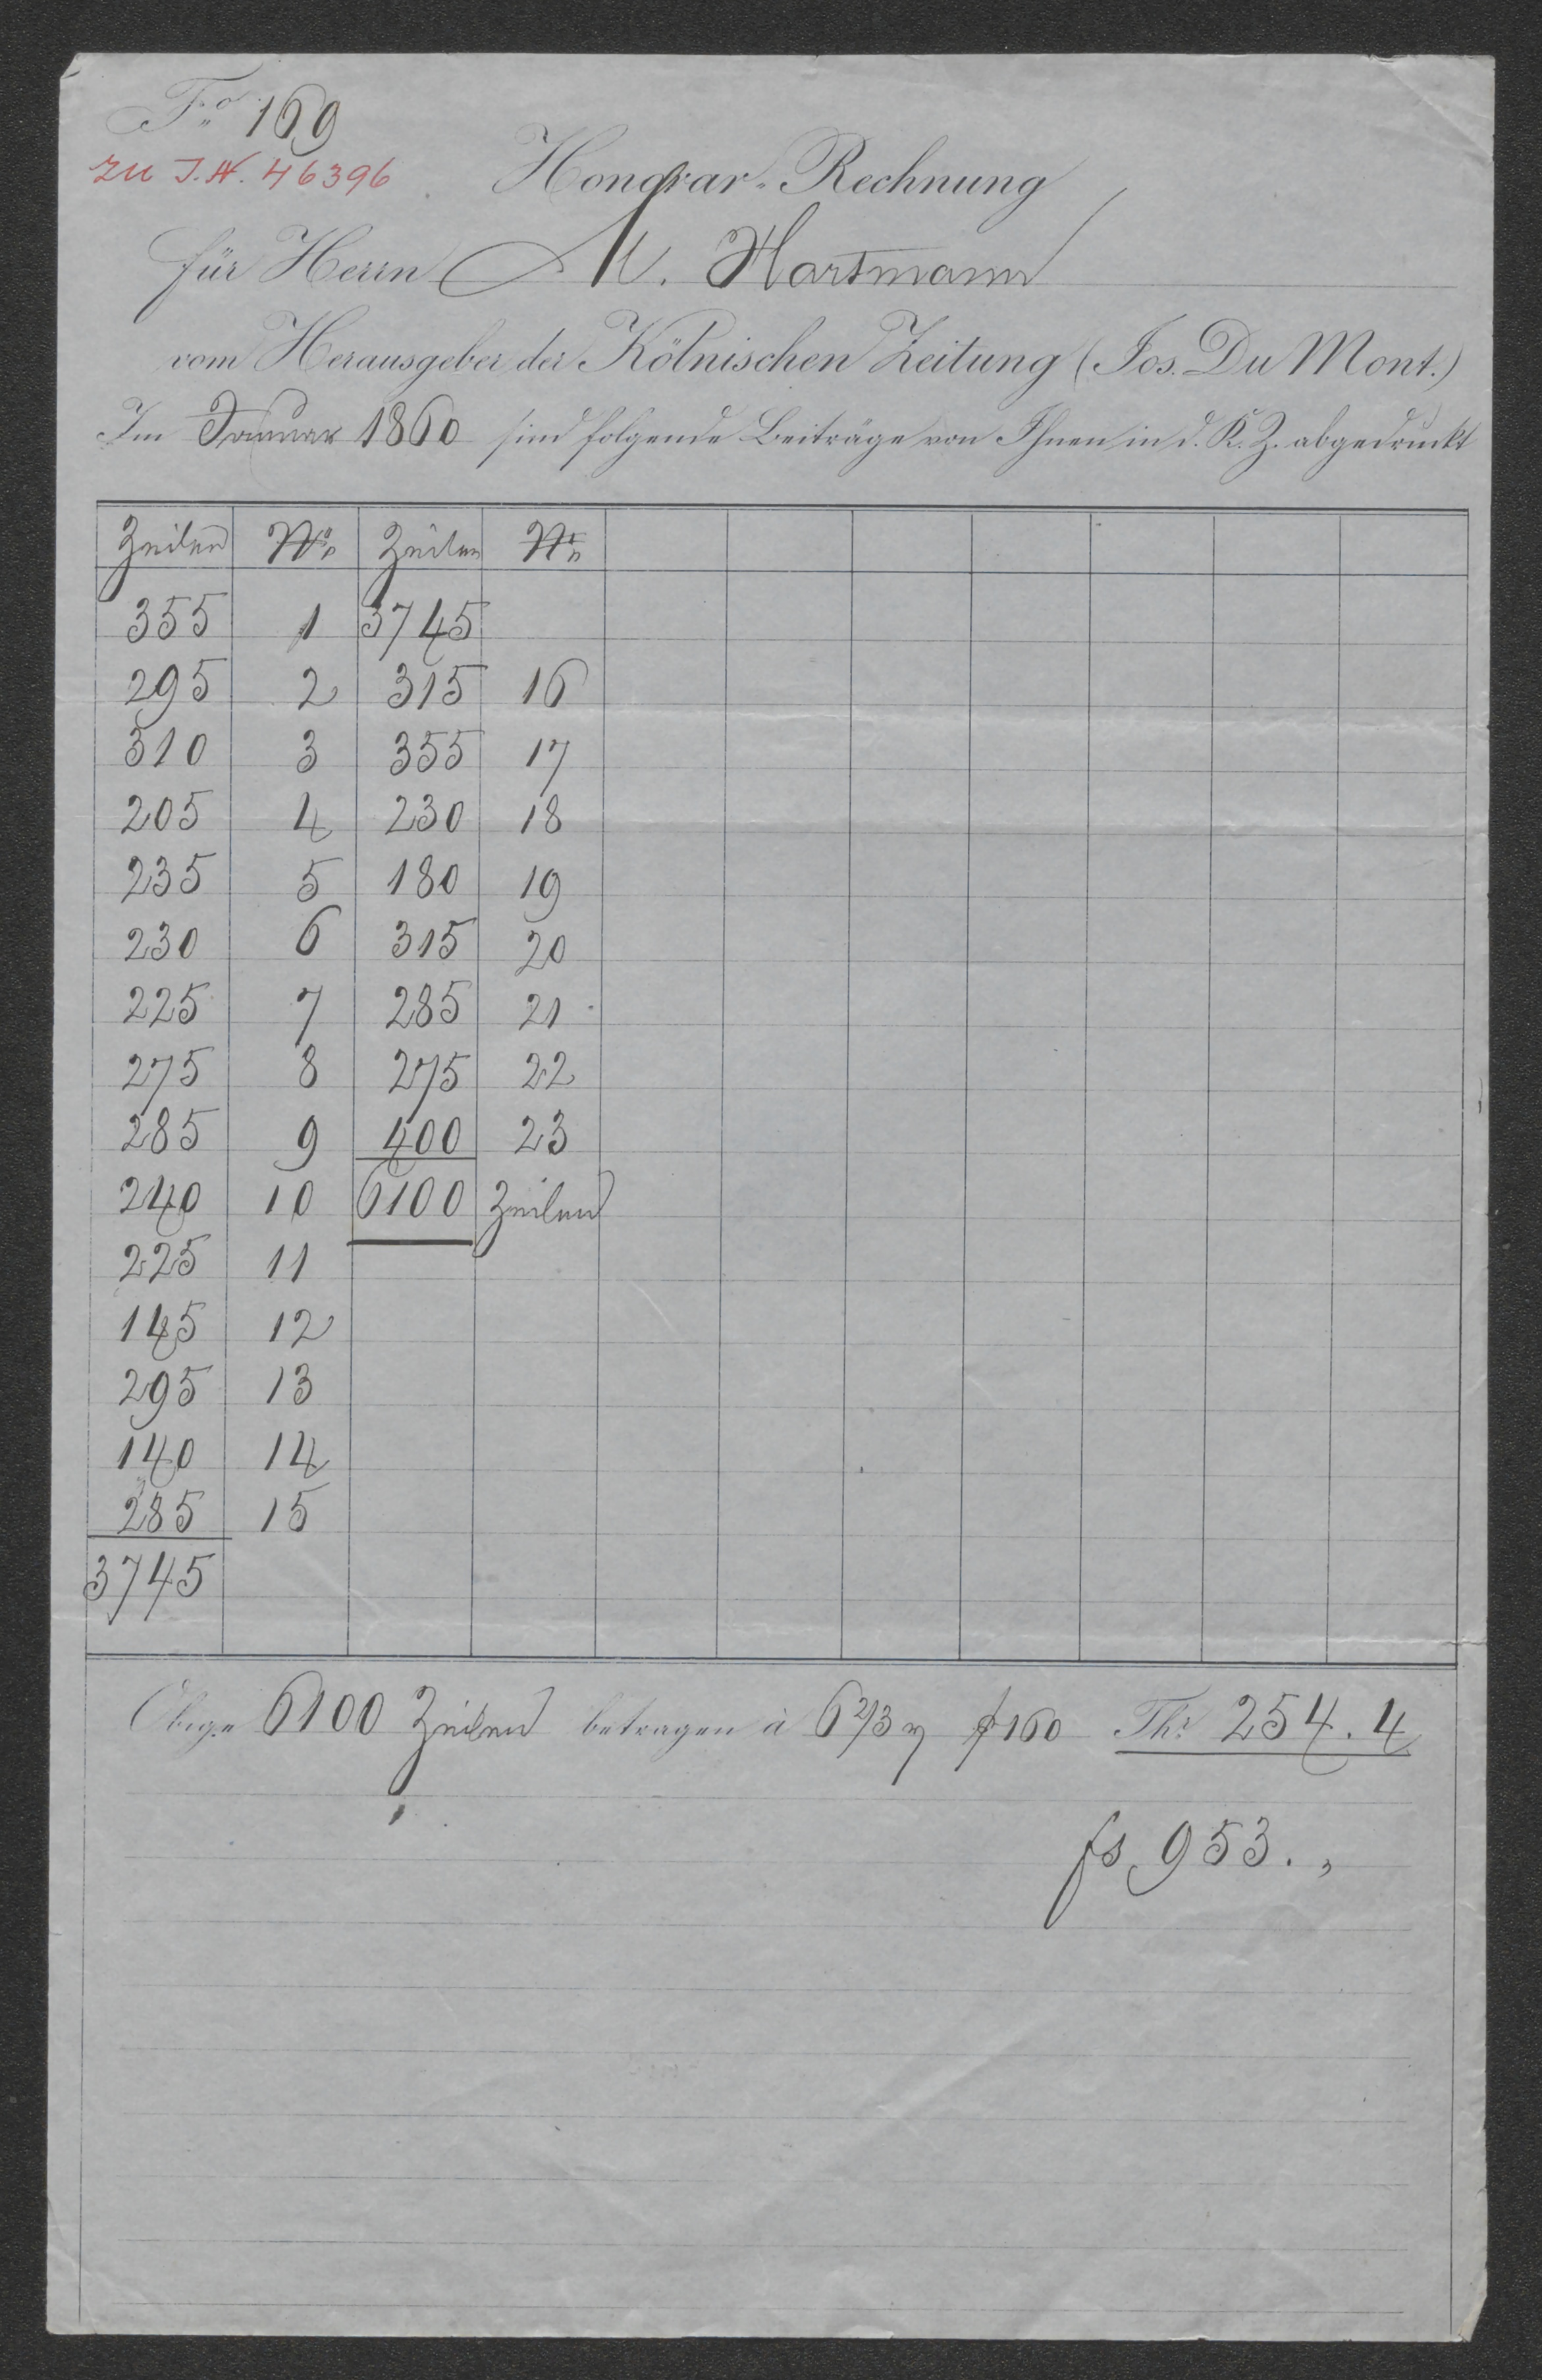 Fo 169
zu I.N. 46396
Honorar-Rechnung
für Herrn M. Hartmann
vom Herausgeber der Kölnischen Zeitung (Jos. Du Mont.)
Im Januar 1860 sind folgende Beiträge von Ihnen in d. K. Z. abgedruckt
Zeilen No Zeilen No
355 1 3745
295 2 315 16
310 3 355 17
205 4 230 18
235 5 180 19
230 6 315 20
225 7 285 21
275 8 275 22
285 9 400 23
240 10 6100 Zeilen
225 11
145 12
295 13
140 14
285 15
3745
Obige 6100 Zeilen betragen à 6 2/3 160 Thr 254.4
fs 953.,